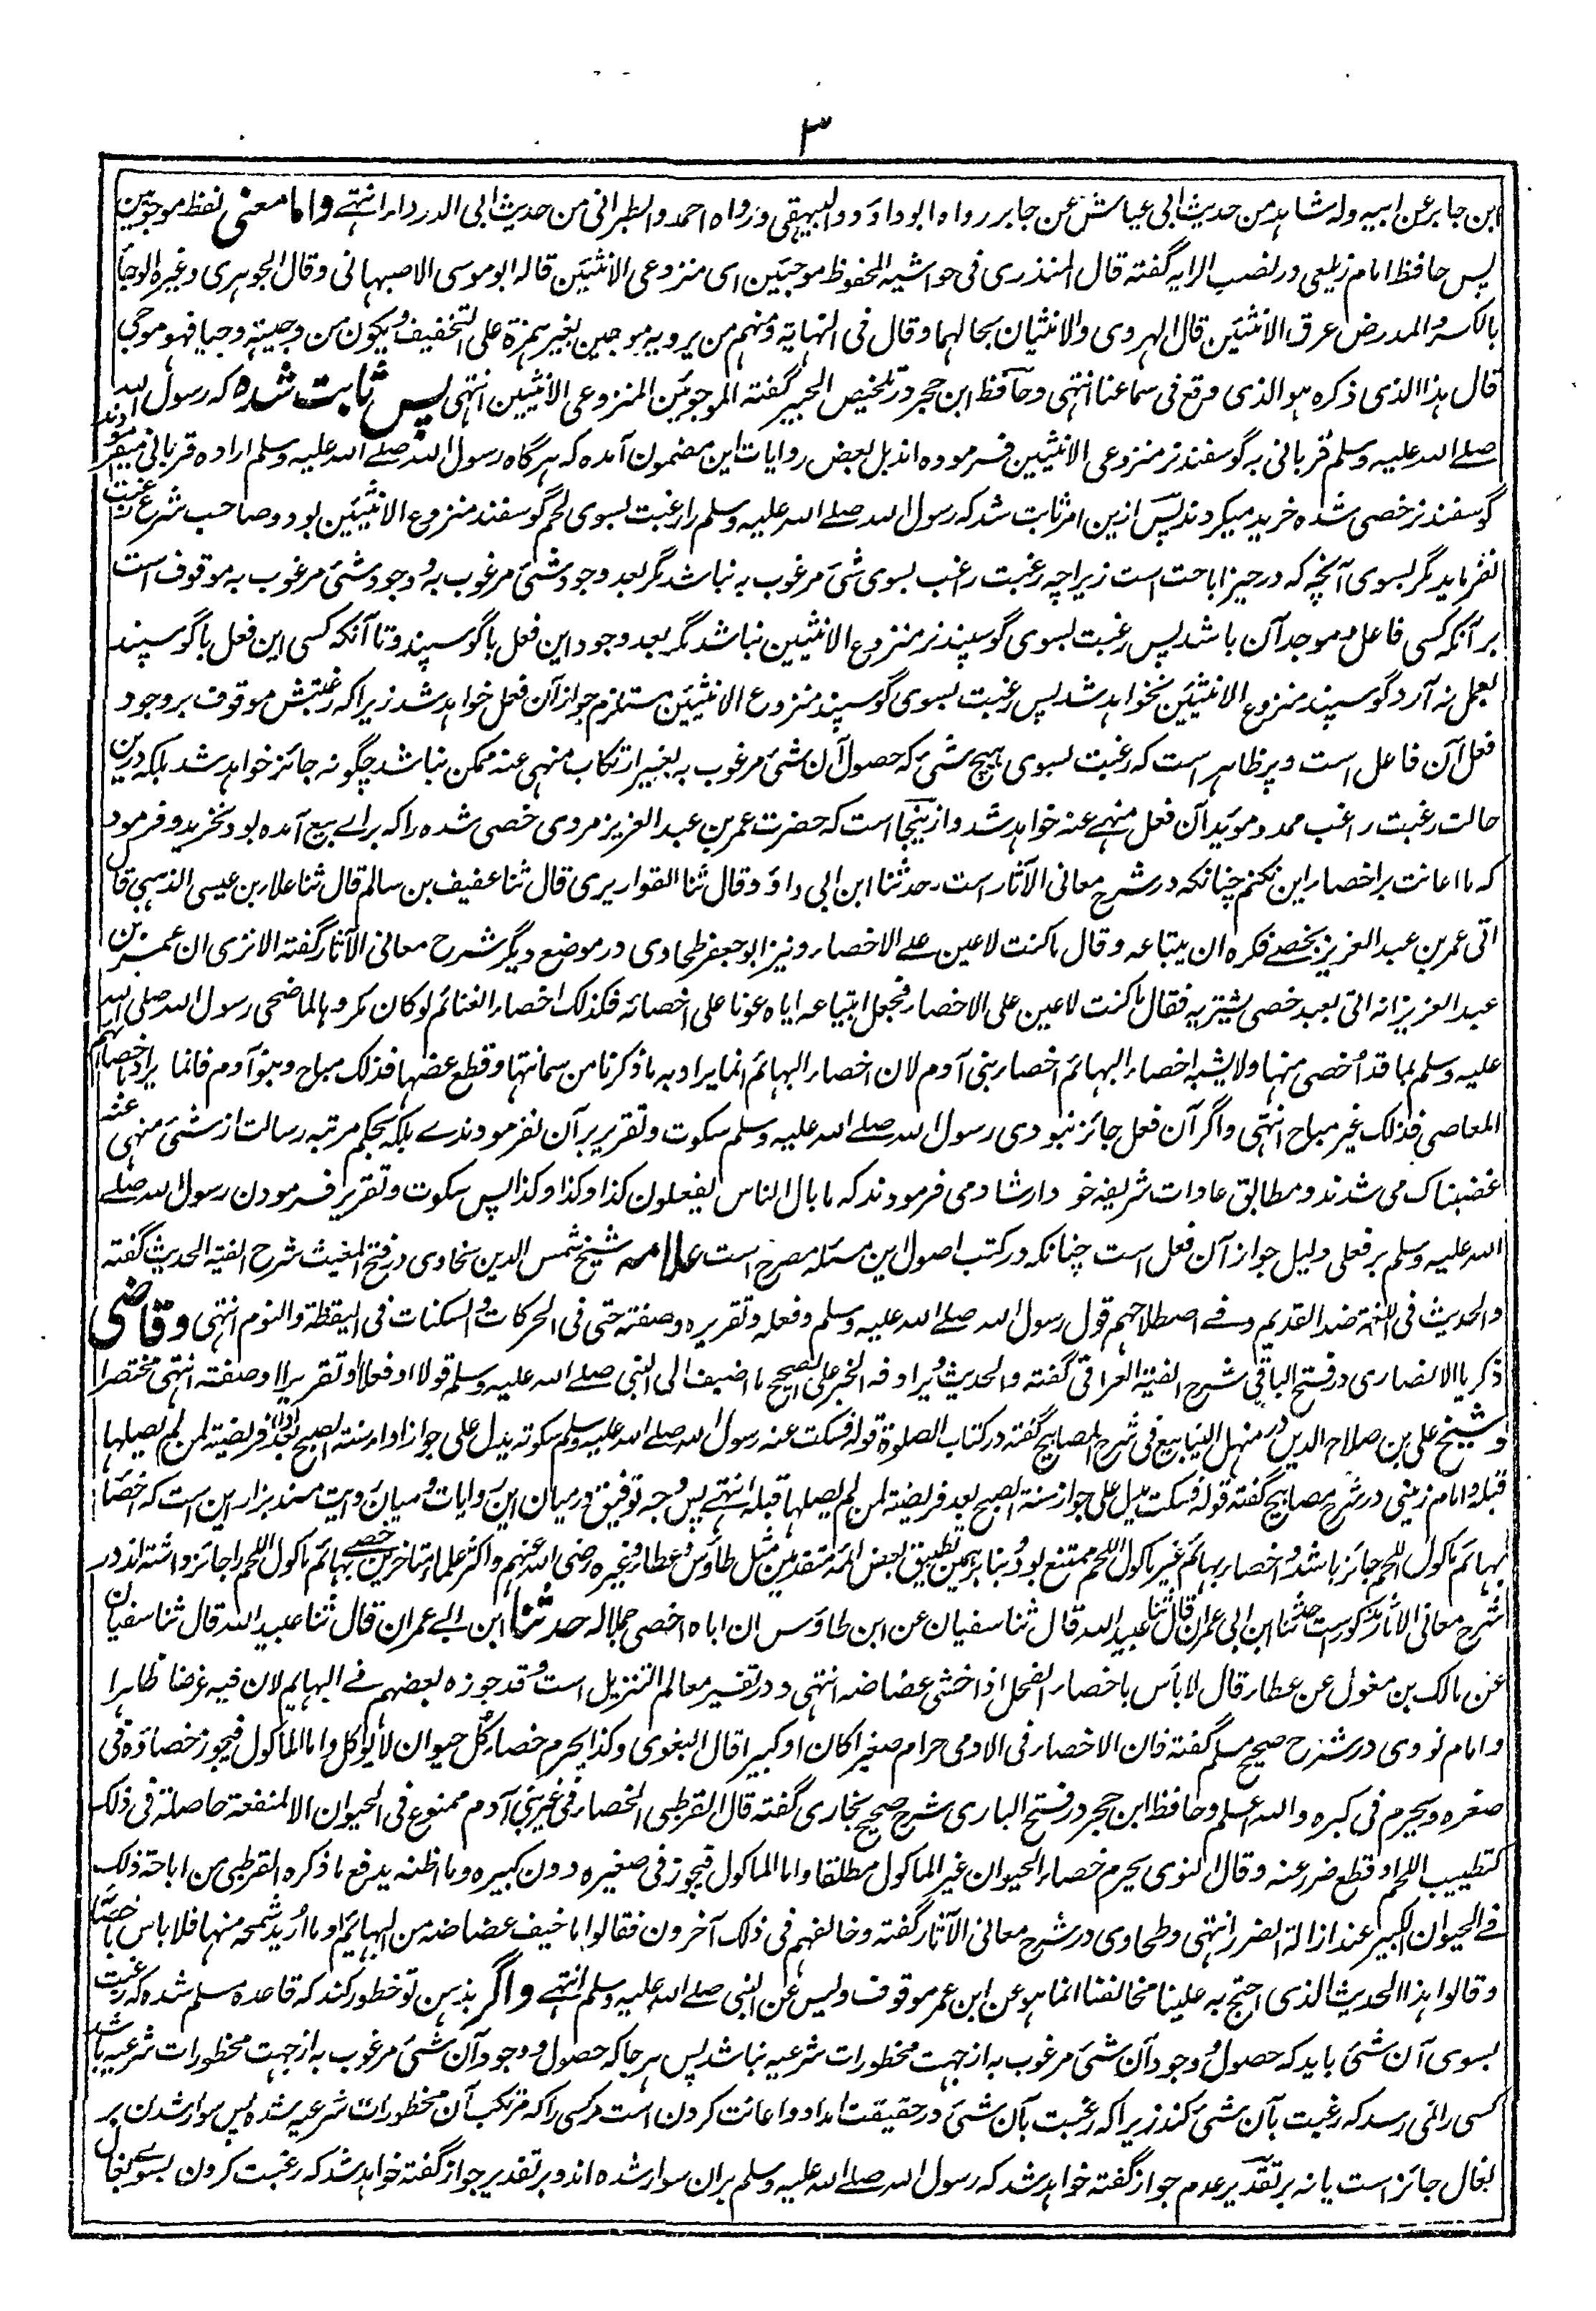 ٣
ابن جابر عن ابیه وله شاهد من حدیث ابی عیاش عن جابر رواه ابو داؤد والبیهقی ورواه احمد والطبرانی من حدیث ابی الدرداء انتهے واما معنی لفظ موجوئین
پس حافظ امام زیلعی در نصب الرایه گفته قال المنذری فی حواشیه المحفوظ موجبین ای منزوعی الانثیین قاله ابو موسی الاصبهانی وقال الجوهری وغیره الوجأ
بالکسر والمد رض عرق الانثیین قال الهروی والانثیان بحالهما وقال فی النهایة ومنهم من یرویه موجیین بغیر همزة علی التخفیف ویکون من وجیته وجیا فهو موجی
قال هذا الذی ذکره هو الذی وقع فی سماعنا انتهی وحافظ ابن حجر در تلخیص الحبیر گفته الموجوئین المنزوعی الانثیین انتهی پس ثابت شده که رسول الله
صلے الله علیه وسلم قربانی به گوسفند نر منزوعی الانثیین فرموده اند بل بعض روایات این مضمون آمده که هرگاه رسول الله صلے الله علیه وسلم اراده قربانی میفرمودند
گوسفند نر خصی شده خرید میکردند پس ازین امر ثابت شد که رسول الله صلے الله علیه وسلم را رغبت بسوی لحم گوسفند منزوع الانثیین بود وصاحب شرع رغبت
نفرماید مگر بسوی آنچه که در حیز اباحت است زیراچه رغبت راغب بسوی شئ مرغوب به نباشد مگر بعد وجود شئ مرغوب به ووجود شئ مرغوب به موقوف است
بر آنکه کسی فاعل وموجد آن باشد پس رغبت بسوی گوسپند نر منزوع الانثیین نباشد مگر بعد وجود این فعل باگوسپند وتا آنکه کسی این فعل باگوسپند
بعمل نه آرد گوسپند منزوع الانثیین نخواهد شد پس رغبت بسوی گوسپند منزوع الانثیین مستلزم جواز آن فعل خواهد شد زیرا که رغبتش موقوف بر وجود
فعل آن فاعل است وپر ظاهر است که رغبت بسوی هیچ شئ که حصول آن شئ مرغوب به بغیر ارتکاب منهی عنه ممکن نباشد چگونه جائز خواهد شد بلکه درین
حالت رغبت راغب ممد وموید آن فعل منهے عنه خواهد شد وازینجا است که حضرت عمر بن عبد العزیز مروی خصی شده را که براے بیع آمده بود نخرید و فرمود
که ما اعانت بر اخصاء این نکنم چنانکه در شرح معانی الآثار است حدثنا ابن ابی داؤد وقال ثنا القواریری قال ثنا عفیف بن سالم قال ثنا علاء بن عیسی الذهبی قال
اتی عمر بن عبد العزیز بخصے فکره ان یبتاعه وقال ما کنت لاعین علے الاخصاء ونیز ابو جعفر طحاوی در موضع دیگر شرح معانی الآثار گفته الا تری ان عمر بن
عبد العزیز انه اتی بعبد خصی یشتریه فقال ما کنت لاعین علی الاخصاء فجعل ابتیاعه ایاه عونا علی اخصائه فکذلک اخصاء الغنائم لو کان مکروها لما ضحی رسول الله صلی الله
علیه وسلم بما قد اُخصی منها ولا یشبه اخصاء البهائم اخصاء بنی آدم لان اخصاء البهائم انما یراد به ما ذکرنا من سمانتها وقطع عضها فذلک مباح وبنو آدم فانما یراد باخصائهم
المعاصی فذلک غیر مباح انتهی واگر آن فعل جائز نبودی رسول الله صلے الله علیه وسلم سکوت وتقریر بر آن نفرمودندے بلکه بحکم مرتبه رسالت از شئ منهی عنه
غضبناک می شدند ومطابق عادات شریفه خود ارشاد می فرمودند که ما بال الناس یفعلون کذا وکذا وکذا پس سکوت وتقریر فرمودن رسول الله صلے
الله علیه وسلم بر فعلی دلیل جواز آن فعل است چنانکه در کتب اصول این مسئله مصرح است علامه شیخ شمس الدین سخاوی در فتح المغیث شرح الفیة الحدیث گفته
والحدیث فی اللغة ضد القدیم وفے اصطلاحهم قول رسول الله صلے الله علیه وسلم وفعله وتقریره وصفته حتی فی الحرکات والسکنات فی الیقظة والنوم انتهی وقاضی
زکریا الانصاری در فتح الباقی شرح الفیة العراقی گفته والحدیث یرادفه الخبر علی الصحیح ما اضیف الی النبی صلے الله علیه وسلم قولا او فعلا او تقریرا او صفته انتهی مختصرا
وشیخ علی بن صلاح الدین در منهل الینابیع فی شرح المصابیح گفته در کتاب الصلوة قوله فسکت عنه رسول الله صلے الله علیه وسلم سکوته یدل علی جواز اداء سنة الصبح بعد اداء فریضته لمن لم یصلها
قبله وامام زینی در شرح مصابیح گفته قوله فسکت یدل علی جواز سنة الصبح بعد فریضته لمن لم یصلها قبله انتهے پس وجه توفیق درمیان این روایات ومیان روایت مسند بزار این است که اخصا
بهائم ماکول اللحم جائز باشد واخصاء بهائم غیر ماکول اللحم ممتنع بود وبنا بر همین تطبیق بعض ائمه متقدمین مثل طاؤس وعطاء وغیره رضی الله عنهم واکثر علماء متاخرین خصے بهائم ماکول اللحم را جائز داشته اند در
شرح معانی الآثار مذکور است حدثنا ابن ابی عمران قال ثنا عبید الله قال ثنا سفیان عن ابن طاوس ان اباه اخصی جملا له حدثنا ابن ابے عمران قال ثنا عبید الله قال ثنا سفیان
عن مالک بن مغول عن عطاء قال لا بأس باخصاء الفحل اذا خشی عضاضه انتهی ودر تفسیر معالم التنزیل است وقد جوزه بعضهم فے البهایم لان فیه غرضا ظاهرا
وامام نووی در شرح صحیح مسلم گفته فان الاخصاء فی الادمی حرام صغیرا کان او کبیرا قال البغوی وکذا یحرم خصاء کل حیوان لا یؤکل واما الماکول فیجوز خصاؤه فی
صغره ویحرم فی کبره والله اعلم وحافظ ابن حجر در فتح الباری شرح صحیح بخاری گفته قال القرطبی الخصاء فی غیر بنی آدم ممنوع فی الحیوان الا لمنفعة حاصلة فی ذلک
کتطییب اللحم او قطع ضرر عنه وقال النووی یحرم خصاء الحیوان غیر الماکول مطلقا واما الماکول فیجوز فی صغیره دون کبیره وما اظنه یدفع ما ذکره القرطبی من اباحة ذلک
فے الحیوان الکبیر عند ازالة الضرر انتهی وطحاوی در شرح معانی الآثار گفته وخالفهم فی ذلک آخرون فقالوا ما خیف عضاضه من البهائم او ما ارید شحمه منها فلا باس باخصا
وقالوا هذا الحدیث الذی احتج به علینا مخالفنا انما هو عن ابن عمر موقوف ولیس عن النبی صلے الله علیه وسلم انتهے واگر بذهن تو خطور کند که قاعده مسلم شده که رغبت
بسوی آن شئ باید که حصول ووجود آن شئ مرغوب به از جهت محظورات شرعیه نباشد پس هر جا که حصول ووجود آن شئ مرغوب به از جهت محظورات شرعیه باشد
کسی را نمی رسد که رغبت بآن شئ کند زیرا که رغبت بآن شئ در حقیقت امداد واعانت کردن است مر کسی را که مرتکب آن محظورات شرعیه شده پس سوار شدن بر
بغال جائز است یا نه بر تقدیر عدم جواز گفته خواهد شد که رسول الله صلے الله علیه وسلم بران سوار شده اند وبر تقدیر جواز گفته خواهد شد که رغبت کردن بسوے بغال